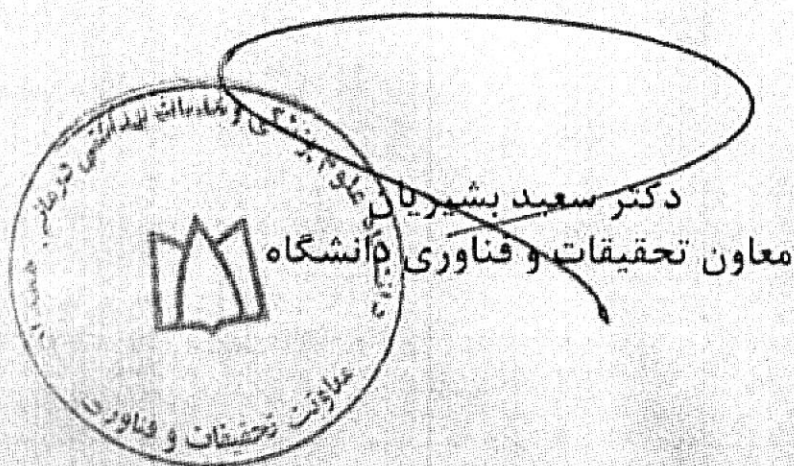 دکتر سعید بشیریان
معاون تحقیقات و فناوری دانشگاه
علوم پزشکی و خدمات بهداشتی درمانی
معاونت تحقیقات و فناوری